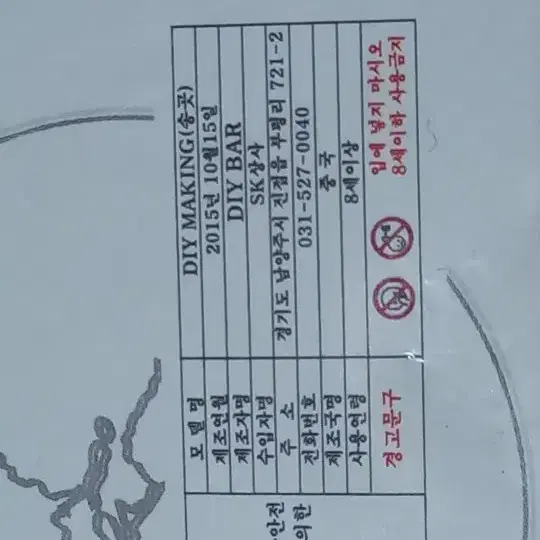 모 델 명 DIY MAKING(송곳)
제조연월 2015년 10월15일
제조자명 DIY BAR
수입자명 SK상사
주 소 경기도 남양주시 진접읍 부평리 721-2
전화번호 031-527-0040
제조국명 중 국
사용연령 8세이상
경고문구 입에 넣지 마시오
8세이하 사용금지
안전
의한